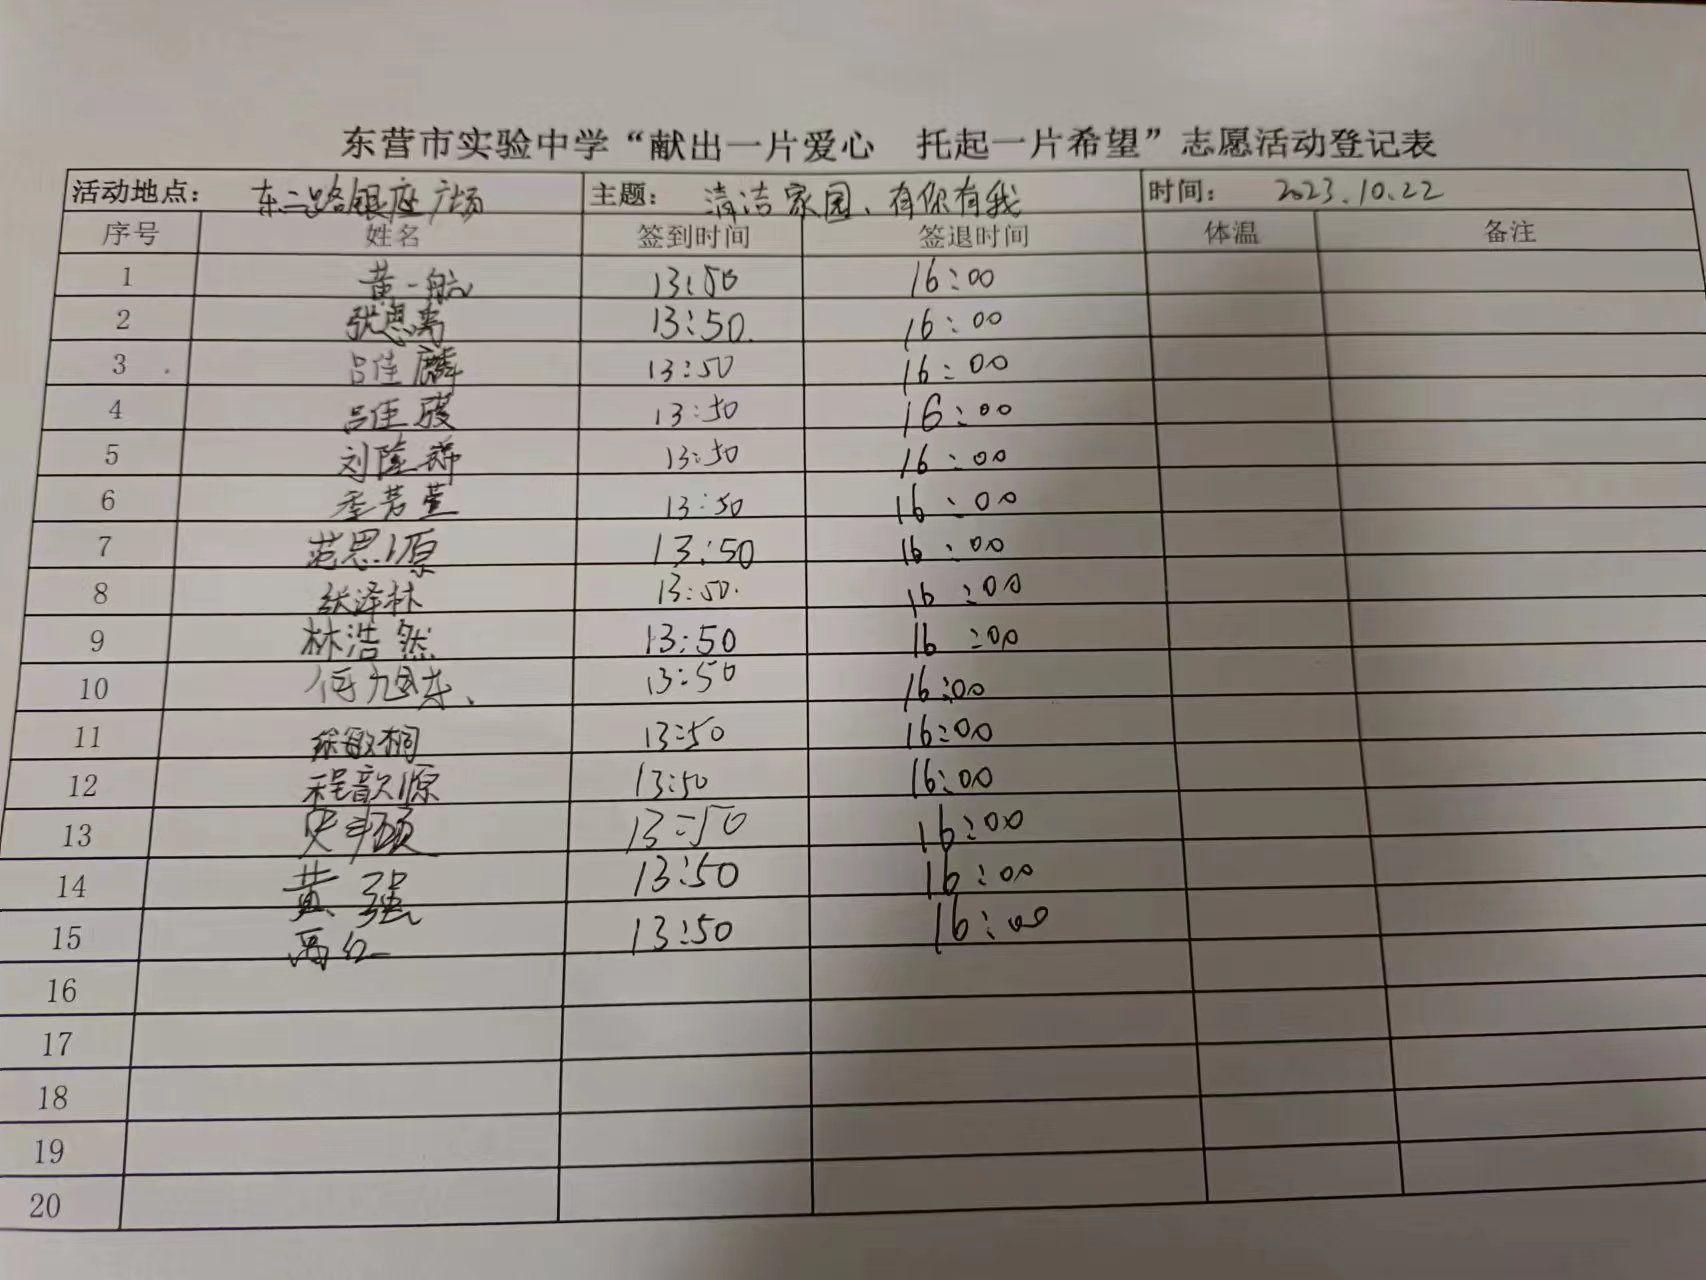 东营市实验中学“献出一片爱心 托起一片希望”志愿活动登记表
活动地点： 东二路银座广场 主题： 清洁家园、有你有我 时间： 2023.10.22
序号 姓名 签到时间 签退时间 体温 备注
1 黄一航 13:50 16:00
2 张恩禹 13:50. 16:00
3 吕佳麟 13:50 16:00
4 吕佳骏 13:50 16:00
5 刘隆 13:50 16:00
6 季芳萱 13:50 16:00
7 范思源 13:50 16:00
8 张泽林 13:50. 16:00
9 林浩然 13:50 16:00
10 任旭东、 13:50 16:00
11 徐敏桐 13:50 16:00
12 程歆源 13:50 16:00
13 13:50 16:00
14 黄强 13:50 16:00
15 13:50 16:00
16
17
18
19
20